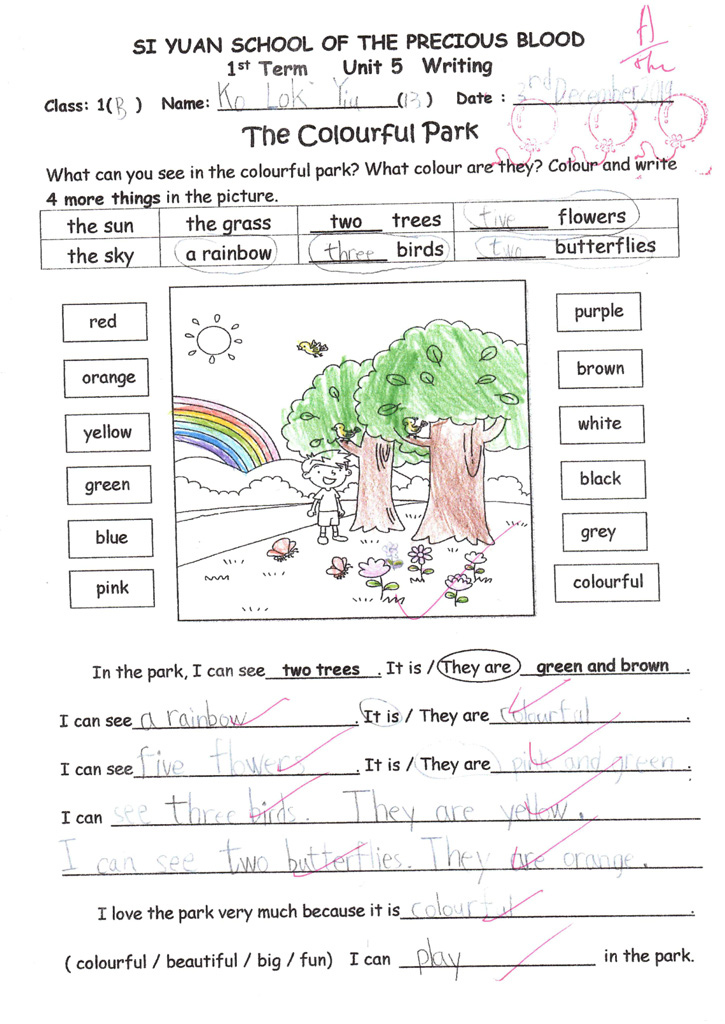 SI YUAN SCHOOL OF THE PRECIOUS BLOOD
1st Term Unit 5 Writing
A
Class: 1(B) Name: Ko Lok Yiu (13) Date : 3rd December
The Colourful Park
What can you see in the colourful park? What colour are they? Colour and write
4 more things in the picture.
the sun the grass two trees five flowers
the sky a rainbow three birds two butterflies
red
orange
yellow
green
blue
pink
purple
brown
white
black
grey
colourful
In the park, I can see two trees . It is / They are green and brown .
I can see a rainbow . It is / They are colourful .
I can see five flowers . It is / They are pink and green .
I can see three birds. They are yellow.
I can see two butterflies. They are orange.
I love the park very much because it is colourful .
( colourful / beautiful / big / fun) I can play in the park.